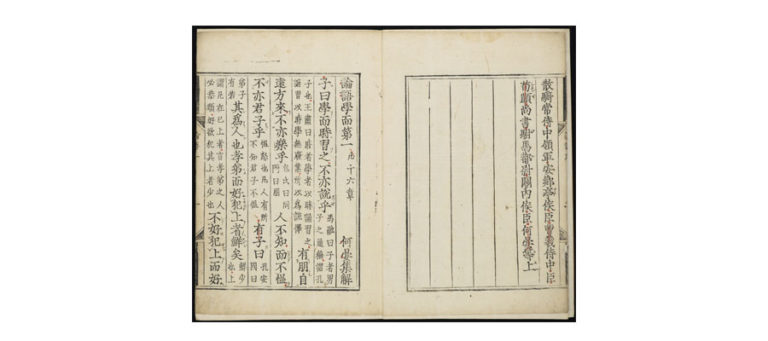 散騎常侍中領軍安鄉亭侯臣曹羲侍中臣
荀顗尚書駙馬都尉關內侯臣何晏等上
論語學而第一 凡十六章 何晏集解
子曰學而時習之不亦說乎 馬融曰子者男子之通稱謂孔
子也王肅曰時者學者以時誦習之誦習以時學無廢業所以爲說懌 有朋自
遠方來不亦樂乎 苞氏曰同門曰朋 人不知而不慍
不亦君子乎 慍怒也凡人有所不知君子不慍 有子曰 孔安國曰
弟子有若 其爲人也孝弟而好犯上者鮮矣 鮮少也上
謂凡在己上者言孝弟之人必恭順好欲犯其上者少也 不好犯上而好